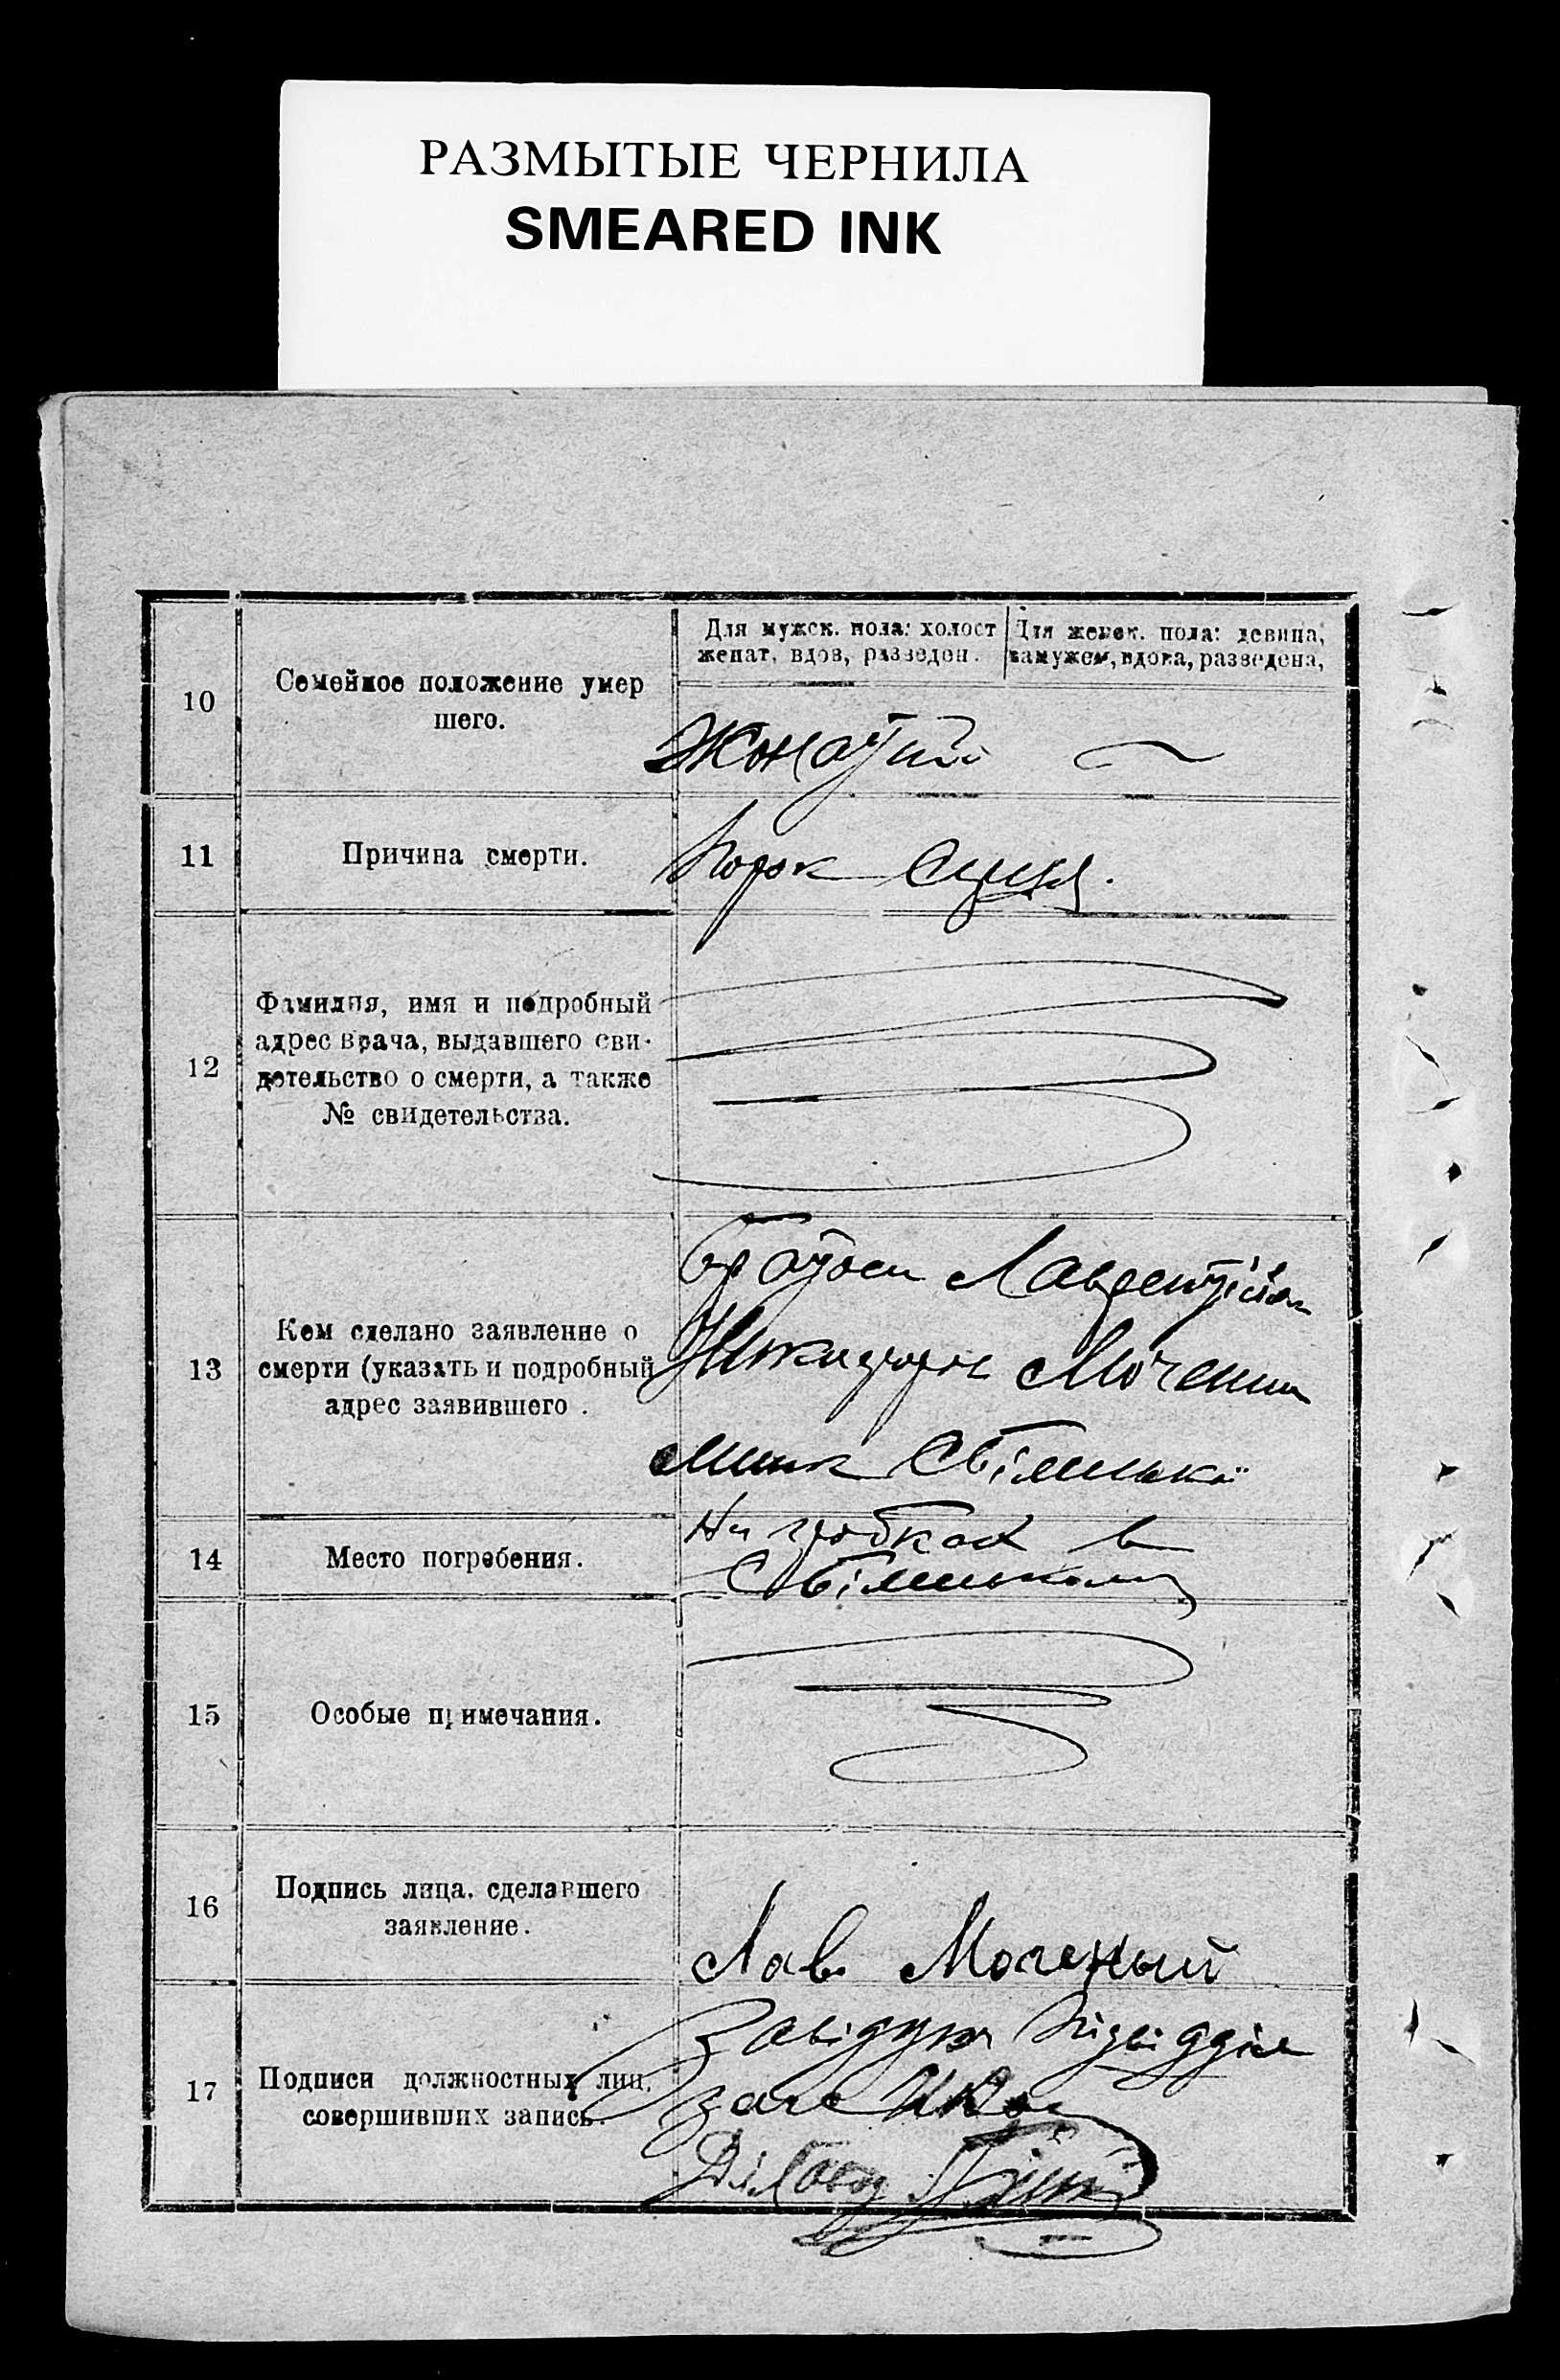 РАЗМЫТЫЕ ЧЕРНИЛА
SMEARED INK
Для мужск. пола: холост
женат, вдов, разведен.
Для женск. пола: девица,
замужем, вдова, разведена,
10
Семейное положение умер
шего.
Жонатий
11
Причина смерти.
Порок
12
Фамилия, имя и подробный
адрес врача, выдавшего сви-
детельство о смерти, а также
№ свидетельства.
13
Кем сделано заявление о
смерти (указать и подробный
адрес заявившего .
братом Лаврентійом
14
Место погребения.
На гробках в
15
Особые примечания.
16
Подпись лица, сделавшего
заявление.
Лав. Моченый
17
Подписи должностных лиц,
совершивших запись.
Завідуюч Підвідділ